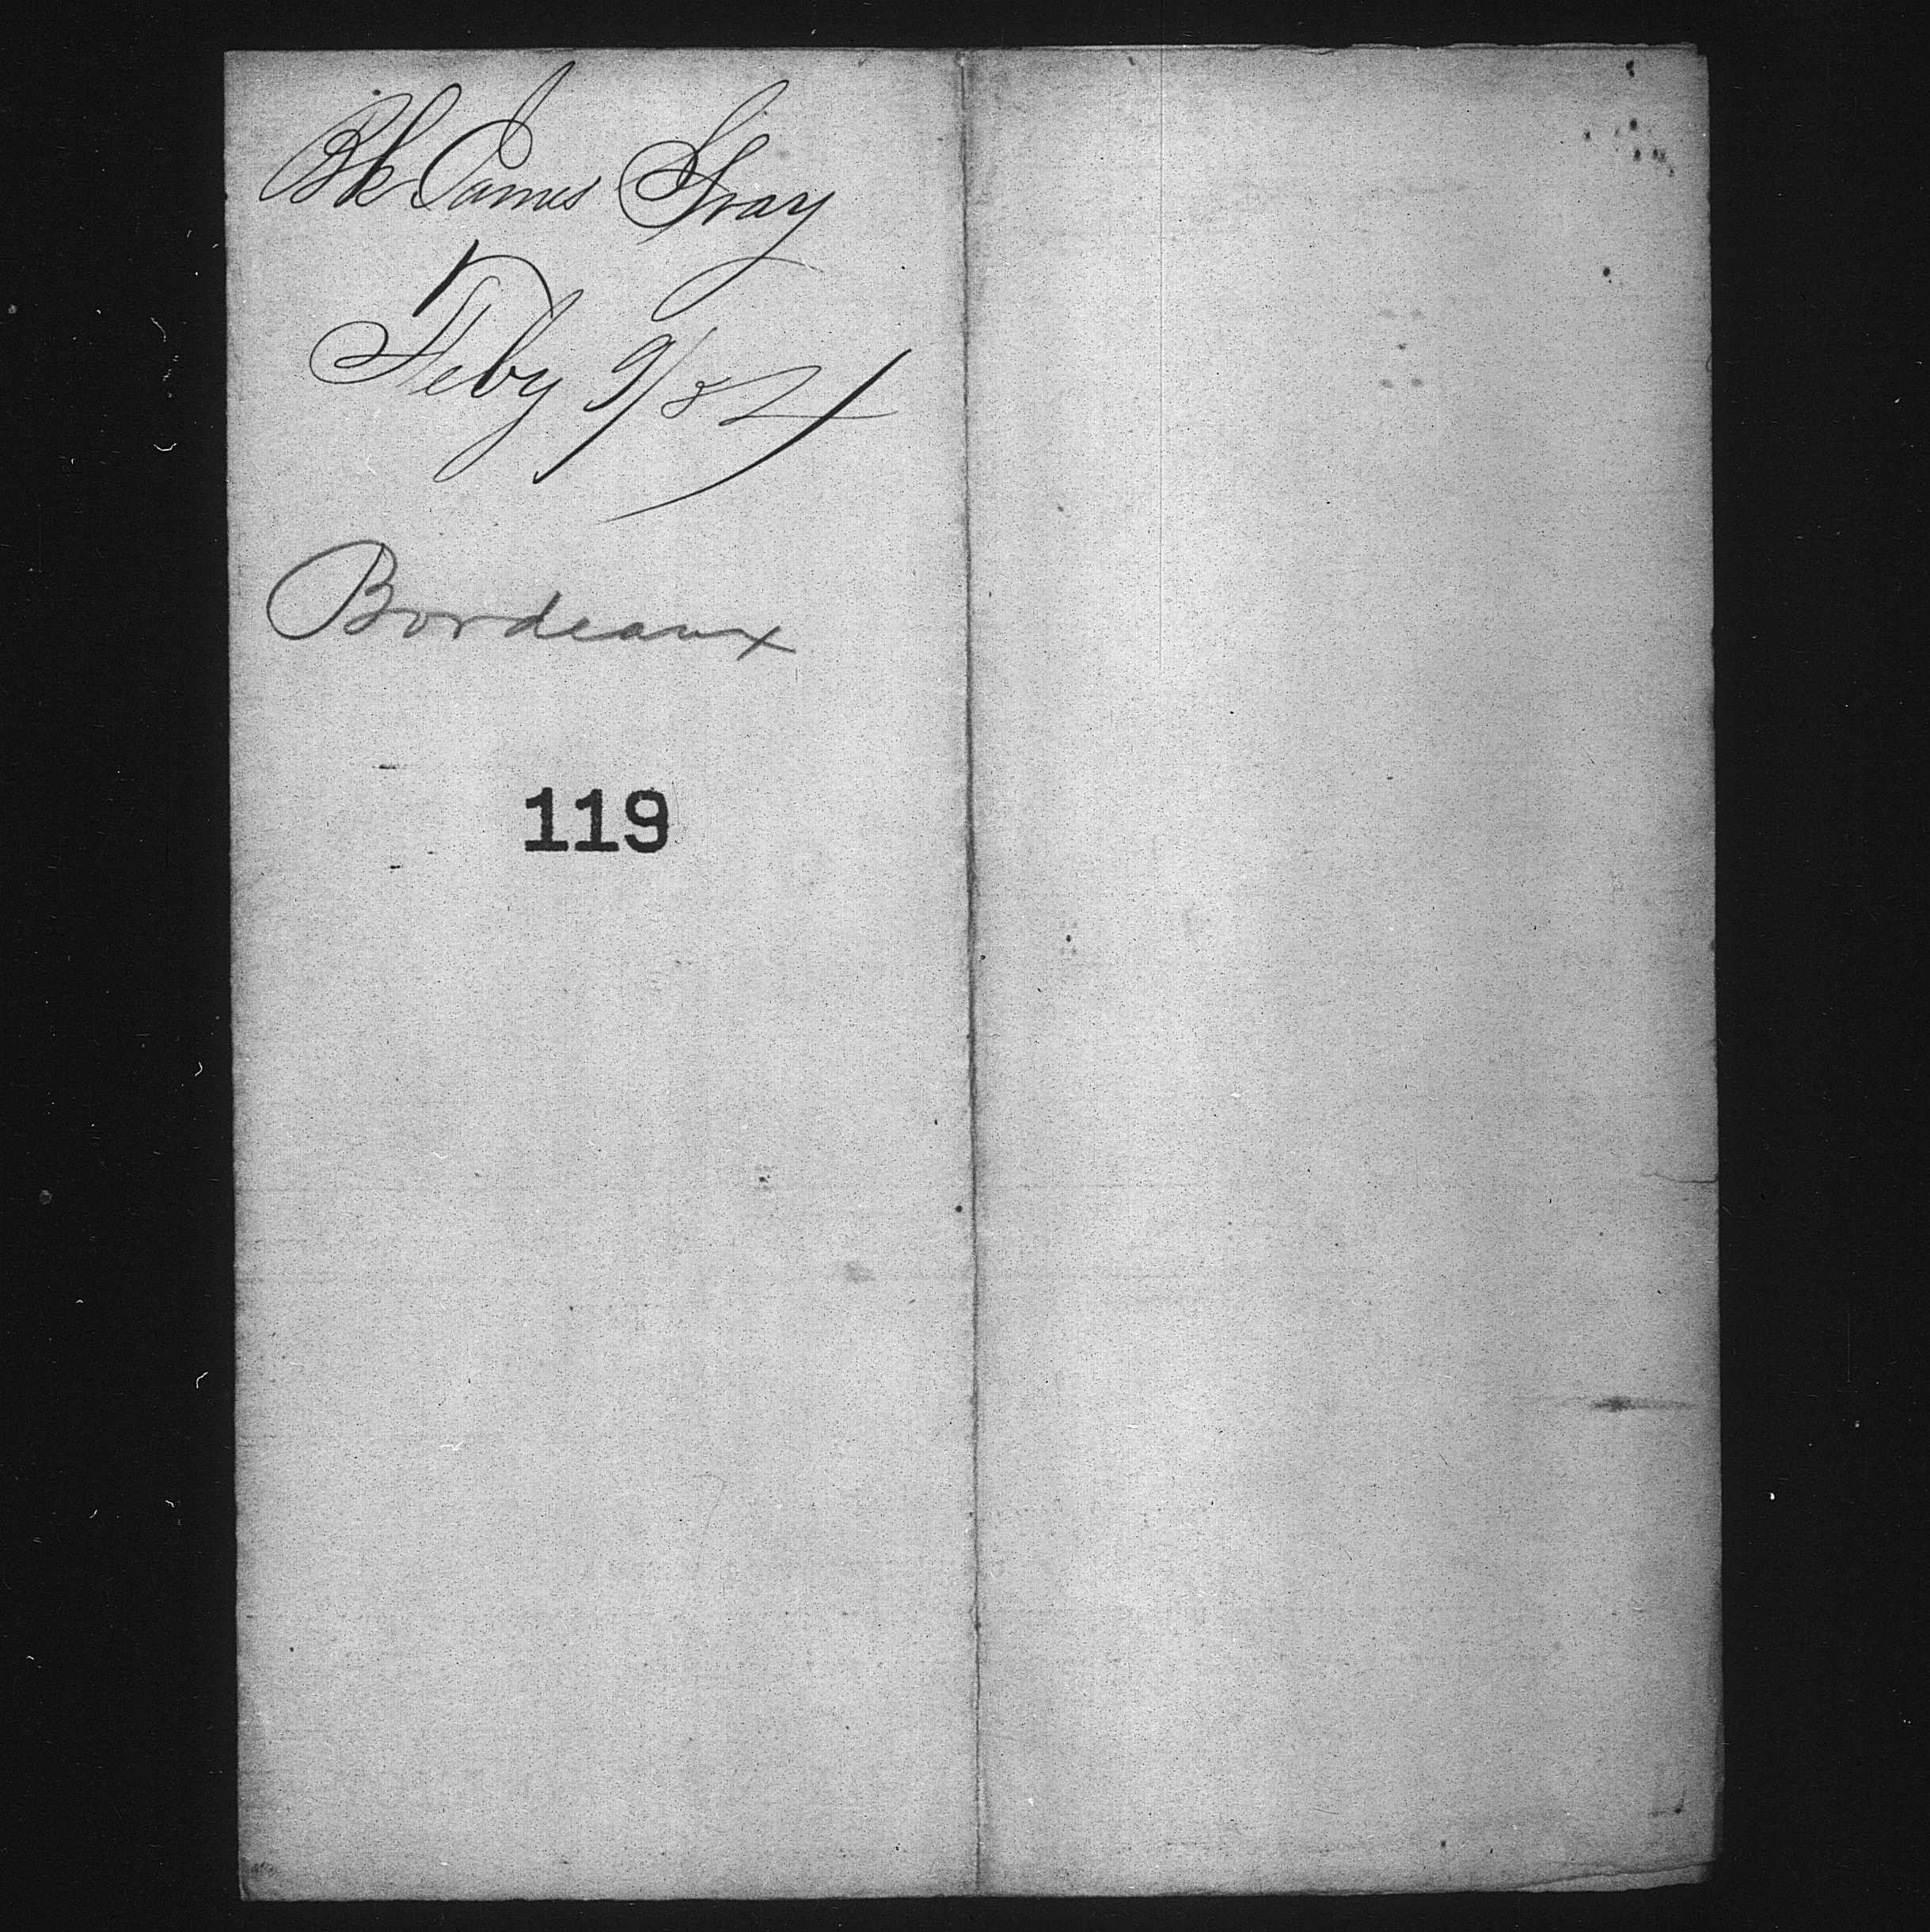 Bk James Gray
Feby 9/54
Bordeaux
119